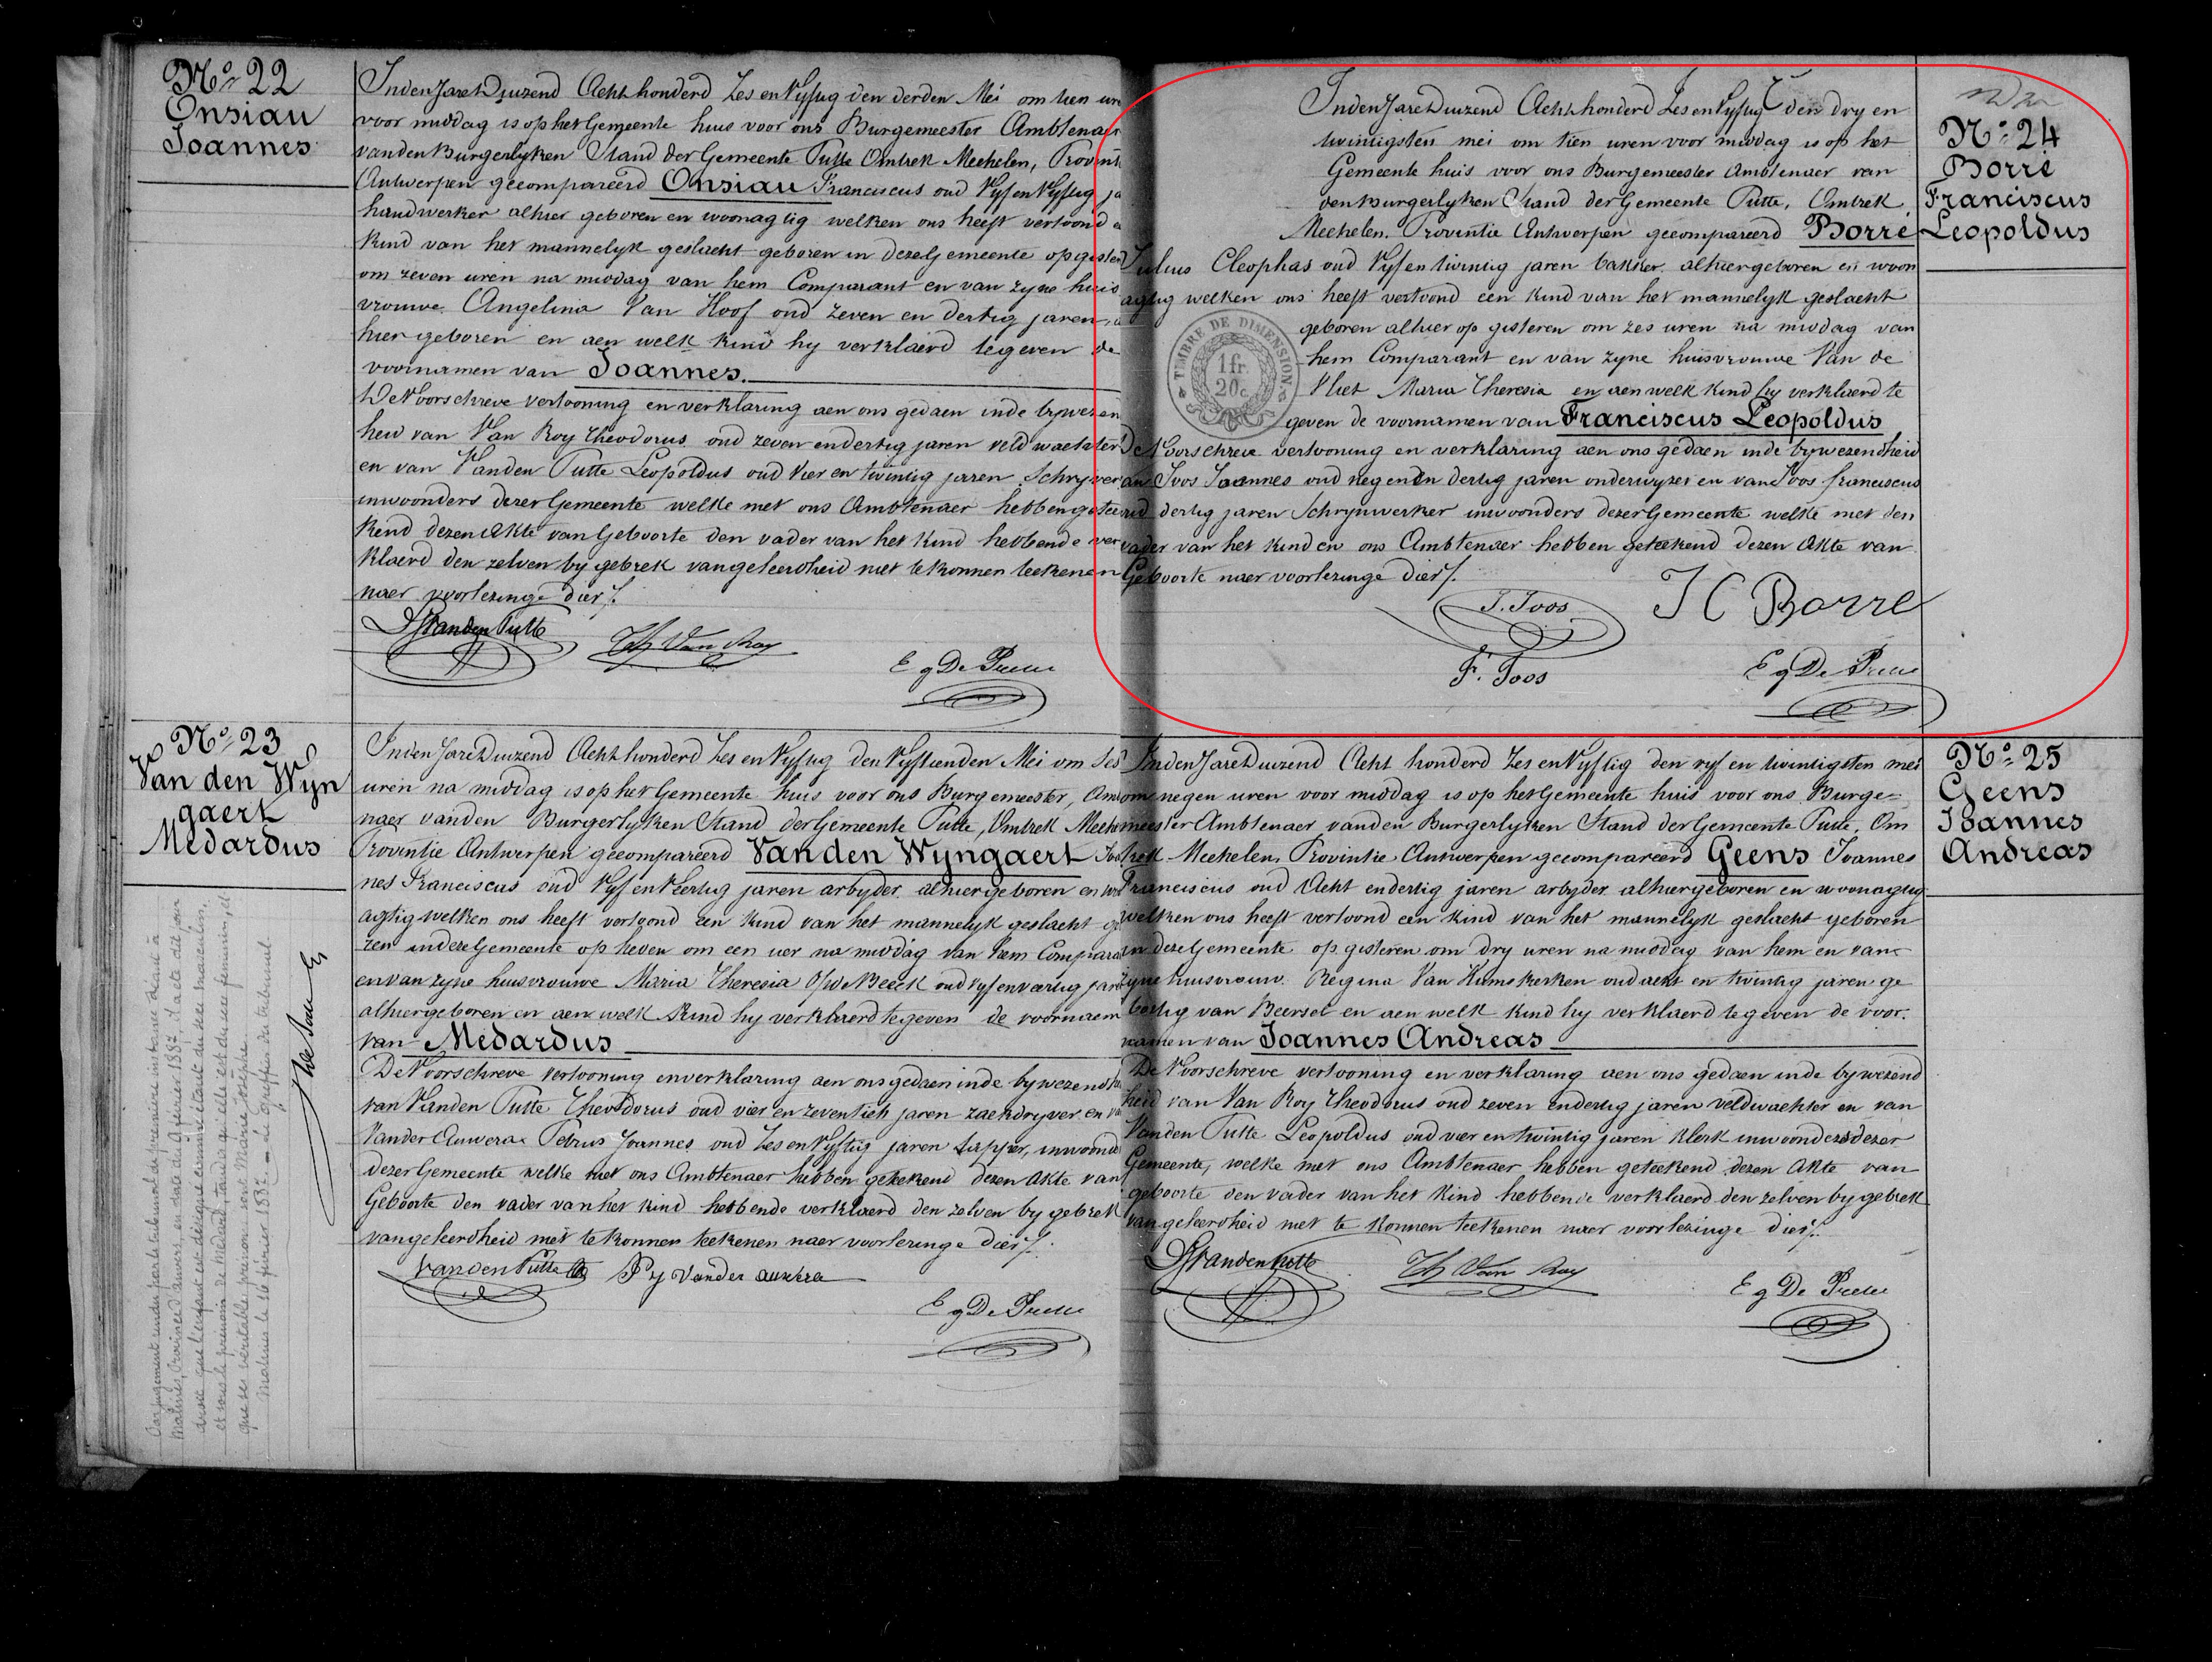 No 22
Onsiau
Joannes
In den Jare Duizend Acht honderd Zes en Vyftig den derden Mei om tien uren
voor middag is op het Gemeente huis voor ons Burgemeester Ambtenaer
van den Burgerlyken Stand der Gemeente Putte Omtrek Mechelen, Provint
Antwerpen gecompareerd Onsiau Franciscus oud Vyf en Vyftig ja
handwerker alhier geboren en woonagtig welken ons heeft vertoond e
kind van het mannelyk geslacht geboren in deze Gemeente op gister
om zeven uren na middag van hem Comparant en van zyne huis
vrouwe Angelina Van Hoof oud zeven en dertig jaren, a
hier geboren en aen welk kind hy verklaerd te geven de
voornamen van Joannes.
De Voorschreve vertooning en verklaring aen ons gedaen in de bywezen
heid van Van Roy Theodorus oud zeven en dertig jaren veldwachter
en van Vanden Putte Leopoldus oud vier en twintig jaren Schryver
inwoonders dezer Gemeente welke met ons Ambtenaer hebben getee
kend dezen Akte van Geboorte den vader van het kind hebbende ver
klaerd den zelven by gebrek van geleerdheid niet te konnen teekenen
naer voorlezinge dier /.
L Vanden Putte
Th Van Roy
E g De Preter
No 23
Van den Wyn
gaert
Medardus
In den Jare Duizend Acht honderd Zes en Vyftig den Vyftienden Mei om ses
uren na middag is op het Gemeente huis voor ons Burgemeester, Am
naer van den Burgerlyken Stand der Gemeente Putte, Omtrek Meche
Provintie Antwerpen gecompareerd Van den Wyngaert Joa
nes Franciscus oud Vyf en Veertig jaren arbyder alhier geboren en wo
agtig welken ons heeft vertoond een kind van het mannelyk geslacht ge
zen in deze Gemeente op heden om een uer na middag van hem Compara
en van zyne huisvrouwe Maria Theresia Op de Beeck oud vyf en veertig jare
alhier geboren en aen welk kind hy verklaerd te geven de voornaem
van Medardus
De Voorschreve vertooning en verklaring aen ons gedaen in de bywezendh
van Vanden Putte Theodorus oud vier en zeventich jaren zaekdryver en va
Vander Auwera Petrus Joannes oud Zes en Vyftig jaren tapper, inwoond
dezer Gemeente welke met ons Ambtenaer hebben geteekend dezen Akte van
Geboorte den vader van het kind hebbende verklaerd den zelven by gebrek
van geleerdheid niet te konnen teekenen naer voorlezinge dier /.
Vanden Putte
P J Vander auwera
E g De Preter
Par jugement rendu par le tribunal de première instance séant à
Malines, Province d'Anvers, en date du 9 février 1887, l'acte dit par
erreur que l'enfant est désigné comme étant du sexe masculin,
et sous le prénom de Médard, tandis qu'elle est du sexe féminin, et
que ses véritables prénoms sont Marie Josèphe.
Malines le 16 février 1887. — Le greffier du tribunal
No 24
Borré
Franciscus
Leopoldus
In den Jare Duizend Acht honderd Zes en Vyftig den dry en
twintigsten mei om tien uren voor middag is op het
Gemeente huis voor ons Burgemeester Ambtenaer van
den Burgerlyken Stand der Gemeente Putte, Omtrek
Mechelen, Provintie Antwerpen gecompareerd Borré
Julius Cleophas oud Vyf en twintig jaren bakker alhier geboren en woon
agtig welken ons heeft vertoond een kind van het mannelyk geslacht
geboren alhier op gisteren om zes uren na middag van
hem Comparant en van zyne huisvrouwe Van de
Vliet Maria Theresia en aen welk kind hy verklaerd te
geven de voornamen van Franciscus Leopoldus
TIMBRE DE DIMENSION.
1 fr.
20 c.
De Voorschreve vertooning en verklaring aen ons gedaen in de bywezendheid
van Joos Joannes oud negen en dertig jaren onderwyzer en van Joos franciscus
oud dertig jaren Schrynwerker inwoonders dezer Gemeente welke met den
vader van het kind en ons Ambtenaer hebben geteekend dezen Akte van
Geboorte naer voorlezinge dier /.
J. Joos
J C Borre
F. Joos
E g De Preter
No 25
Geens
Joannes
Andreas
In den Jare Duizend Acht honderd Zes en Vyftig den vyf en twintigsten mei
om negen uren voor middag is op het Gemeente huis voor ons Burge=
meester Ambtenaer van den Burgerlyken Stand der Gemeente Putte, Om
trek Mechelen, Provintie Antwerpen gecompareerd Geens Joannes
Franciscus oud Acht en dertig jaren arbyder alhier geboren en woonagtig
welken ons heeft vertoond een kind van het mannelyk geslacht geboren
in deze Gemeente op gisteren om dry uren na middag van hem en van
zyne huisvrouw Regina Van Humskerken oud acht en twintig jaren ge
bortig van Beersel en aen welk kind hy verklaerd te geven de voor.
namen van Joannes Andreas
De Voorschreve vertooning en verklaring aen ons gedaen in de bywezend
heid van Van Roy Theodorus oud zeven en dertig jaren veldwachter en van
Vanden Putte Leopoldus oud vier en twintig jaren klerk inwoonders dezer
Gemeente, welke met ons Ambtenaer hebben geteekend dezen Akte van
geboorte den vader van het kind hebbende verklaerd den zelven by gebrek
van geleerdheid niet te konnen teekenen naer voorlezinge dier /.
L Vanden Putte
Th Van Roy
E g De Preter